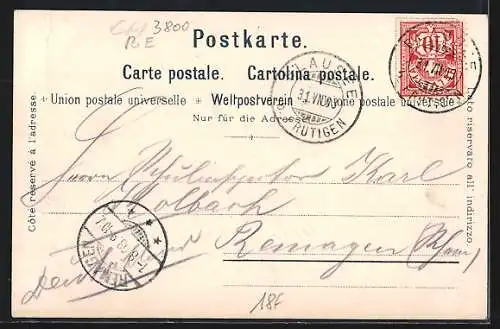 CH 3800
BE
Postkarte.
Carte postale. Cartolina postale.
Union postale universelle Weltpostverein Unione postale universale
Nur für die Adresse
Côté réservé à l'adresse.
Lato riservato all' indirizzo
BLAUSEE
31.VII.03
FRUTIGEN
10
Herrn Karl
Holbach
Remagen (Rhein)
REMAGEN
18F